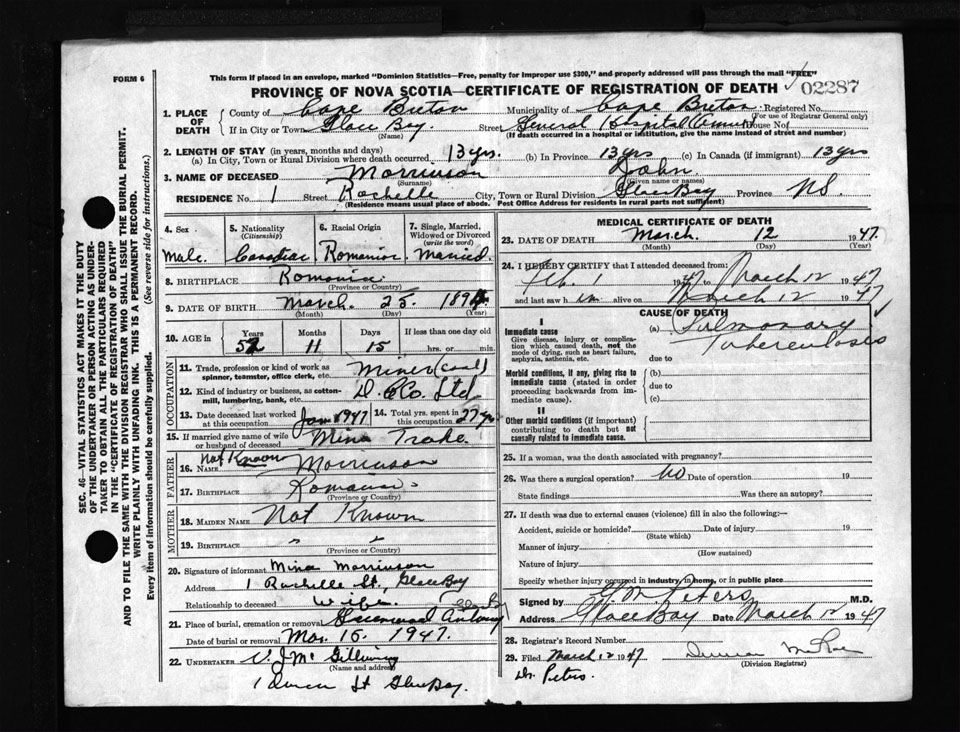 This form if placed in an envelope, marked "Dominion Statistics—Free, penalty for improper use $300," and properly addressed will pass through the mail "FREE"
FORM 6
PROVINCE OF NOVA SCOTIA—CERTIFICATE OF REGISTRATION OF DEATH 02287
1. PLACE OF DEATH County of Cape Breton Municipality of Cape Breton Registered No.
(For use of Registrar General only)
If in City or Town Glace Bay. Street General Hospital House No.
(Name) (If death occurred in a hospital or institution, give the name instead of street and number)
2. LENGTH OF STAY (in years, months and days)
(a) In City, Town or Rural Division where death occurred 13 yrs. (b) In Province 13 yrs (c) In Canada (if immigrant) 13 yrs
3. NAME OF DECEASED Morrinson John
(Surname) (Given name or names)
RESIDENCE No. 1 Street Rochelle City, Town or Rural Division Glace Bay Province N.S.
(Residence means usual place of abode. Post Office Address for residents in rural parts not sufficient)
4. Sex 5. Nationality (Citizenship) 6. Racial Origin 7. Single, Married, Widowed or Divorced (write the word)
Male Canadian Romanian Married
8. BIRTHPLACE Romania
(Province or Country)
9. DATE OF BIRTH March 25 1894
(Month) (Day) (Year)
10. AGE in Years Months Days If less than one day old
52 11 15 hrs. or min.
OCCUPATION
11. Trade, profession or kind of work as spinner, teamster, office clerk, etc. Miner (coal)
12. Kind of industry or business, as cotton-mill, lumbering, bank, etc. D. C Co. Ltd
13. Date deceased last worked at this occupation Jan 1947 14. Total yrs. spent in this occupation 27 yrs
15. If married give name of wife or husband of deceased Mina
FATHER
16. Name Not Known Morrinson
17. Birthplace Romania
(Province or Country)
MOTHER
18. Maiden Name Not Known
19. Birthplace " "
(Province or Country)
20. Signature of informant Mina Morrinson
Address 1 Rochelle St., Glace Bay
Relationship to deceased wife
21. Place of burial, cremation or removal Greenwood
Date of burial or removal Mar. 15. 1947.
22. UNDERTAKER V. J. McGillivray
(Name and address)
St Glace Bay.
MEDICAL CERTIFICATE OF DEATH
23. DATE OF DEATH March 12 1947.
(Month) (Day) (Year)
24. I HEREBY CERTIFY that I attended deceased from:
Feb. 1 1947 to March 12 1947
and last saw him alive on March 12 1947
CAUSE OF DEATH
I
Immediate cause
Give disease, injury or complication which caused death, not the mode of dying, such as heart failure, asphyxia, asthenia, etc.
(a) Pulmonary Tuberculosis
due to
Morbid conditions, if any, giving rise to immediate cause (stated in order proceeding backwards from immediate cause).
(b)
due to
(c)
II
Other morbid conditions (if important) contributing to death but not causally related to immediate cause.
25. If a woman, was the death associated with pregnancy?
26. Was there a surgical operation? No Date of operation 19
State findings Was there an autopsy?
27. If death was due to external causes (violence) fill in also the following:—
Accident, suicide or homicide? Date of injury 19
(State which)
Manner of injury
(How sustained)
Nature of injury
Specify whether injury occurred in industry, in home, or in public place
Signed by Peters M.D.
Address Glace Bay Date March 12 1947
28. Registrar's Record Number
29. Filed March 12 1947
(Division Registrar)
Dr. Peters.
SEC. 46—VITAL STATISTICS ACT MAKES IT THE DUTY
OF THE UNDERTAKER OR PERSON ACTING AS UNDER-
TAKER TO OBTAIN ALL THE PARTICULARS REQUIRED
IN THE "CERTIFICATE OF REGISTRATION OF DEATH"
AND TO FILE THE SAME WITH THE DIVISION REGISTRAR WHO SHALL ISSUE THE BURIAL PERMIT.
WRITE PLAINLY WITH UNFADING INK. THIS IS A PERMANENT RECORD.
Every item of information should be carefully supplied. (See reverse side for instructions.)